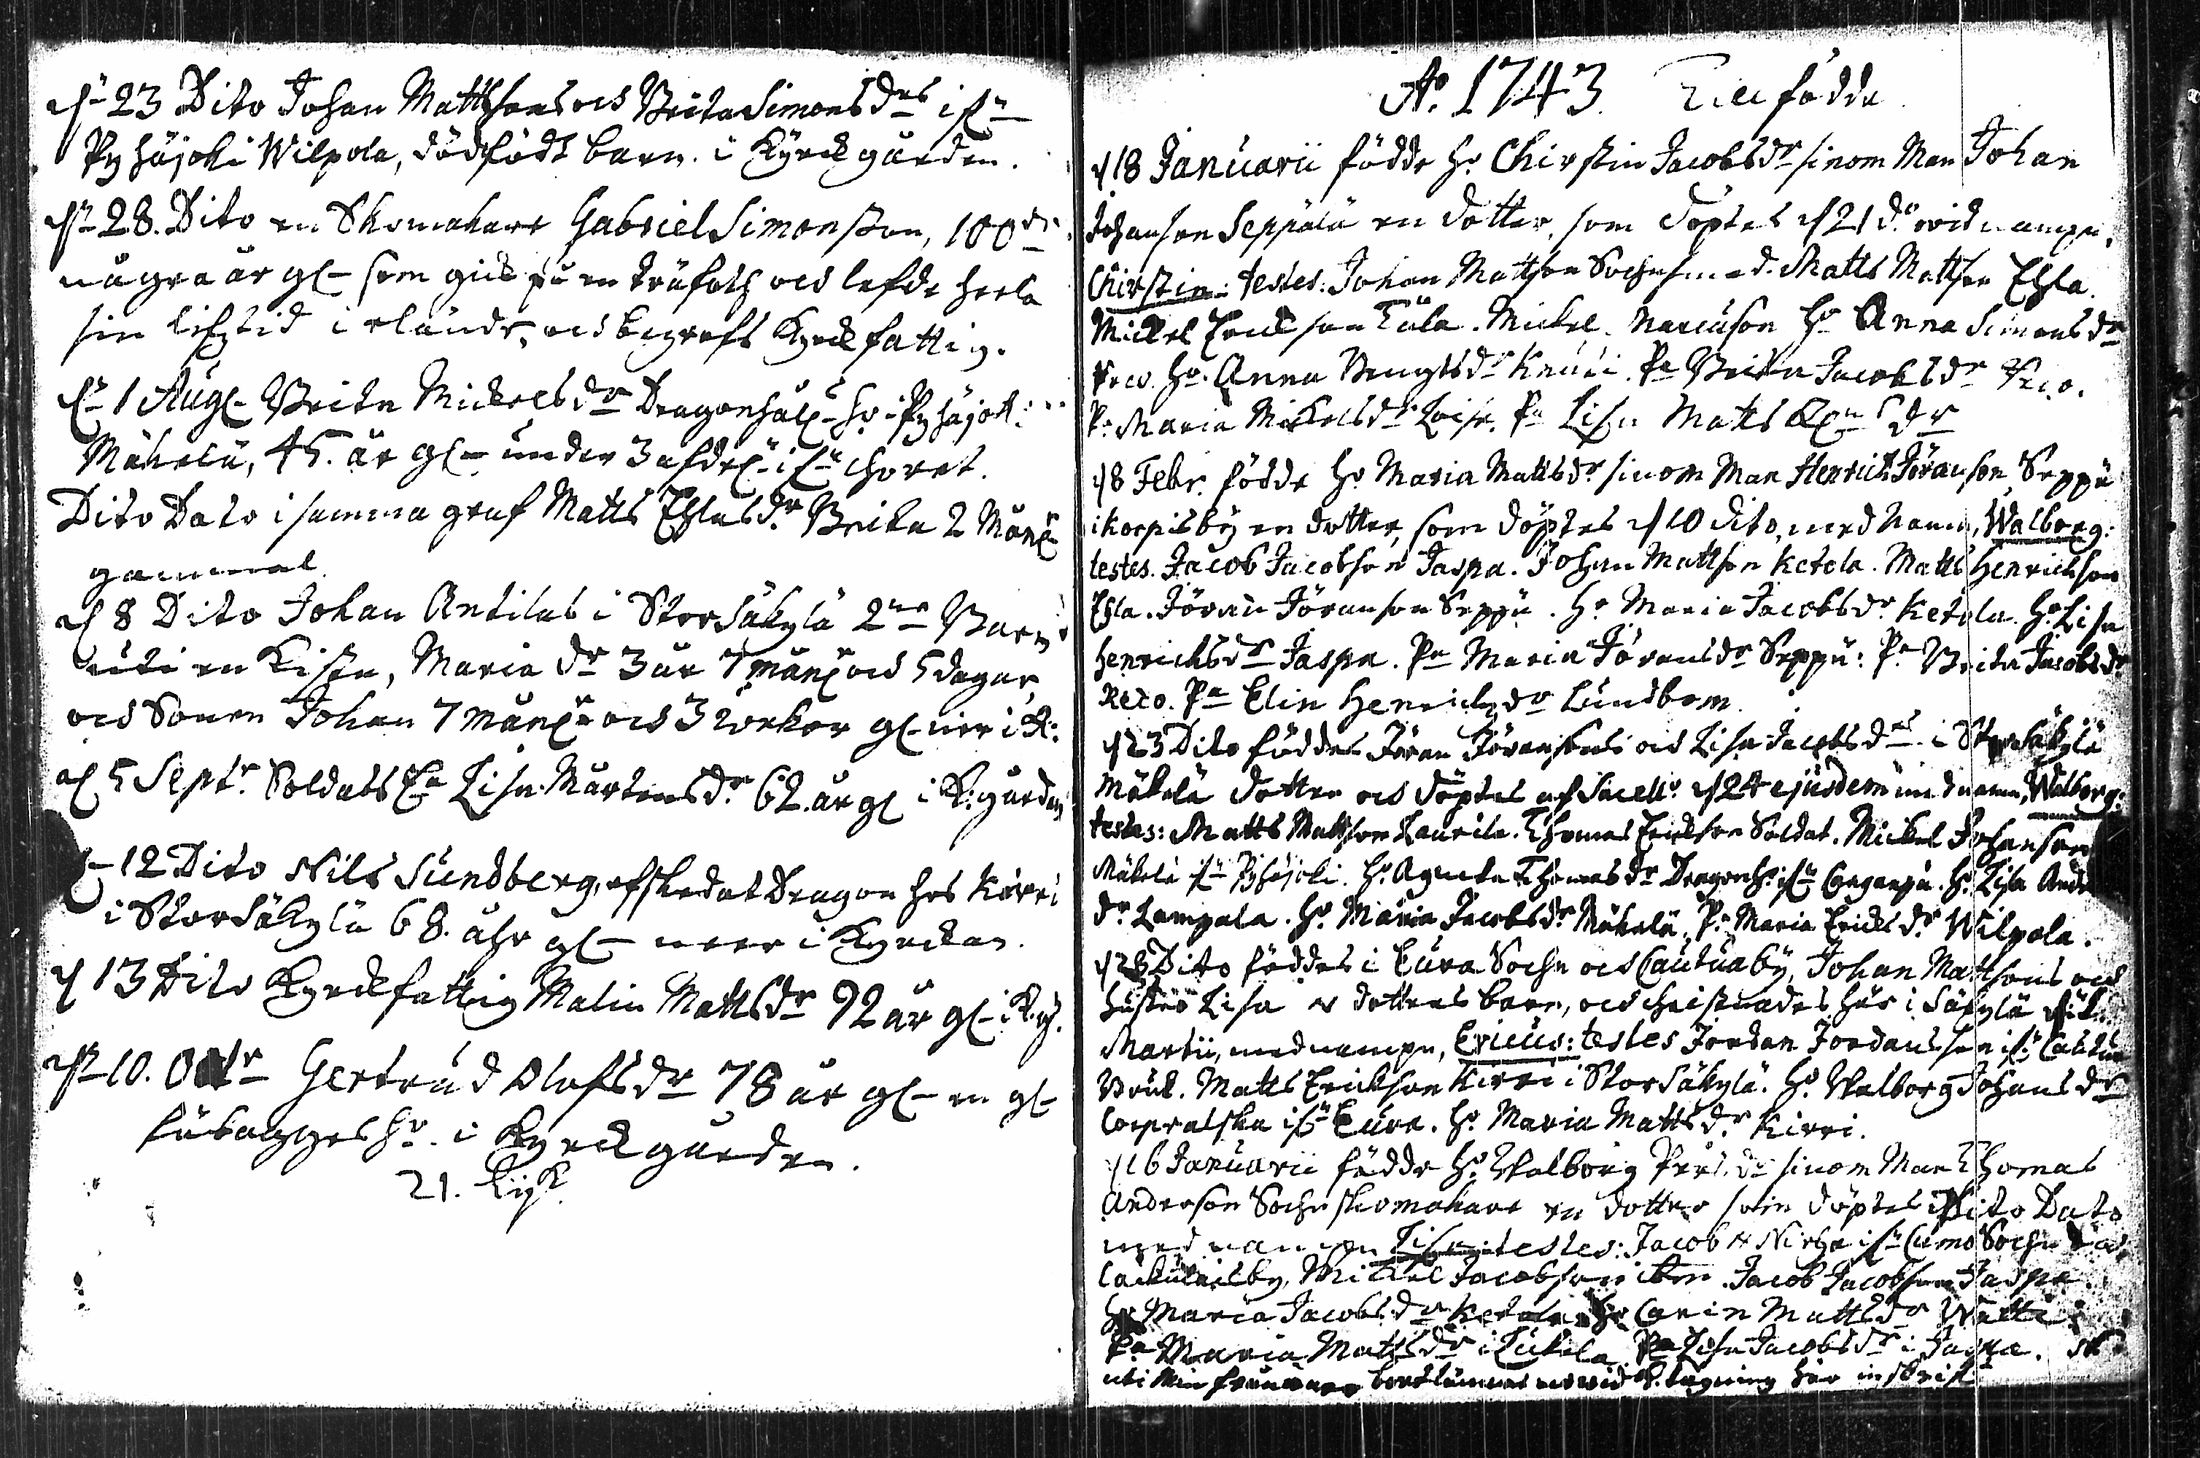 d. 23 Dito Johan Mattssons och Brita Simonsdrs ifrån
Pyhäjoki Wilpola, dödfödt barn. i Kyrckgården.
d. 28. Dito en Skomakare Gabriel Simonsson, 100de
några år gl. som gick på en träfoth och lefde heela
sin lifstid i elände, och begrofs Kyrckfattig.
d. 1 Aug. Brita Mickelsdr Dragonhust. hr. i Pyhäjoki
Mäkelä, 45. år gl. under i choret.
Dito Dato i samma graf Matts Eskas dr. Brita 2 Mån.
gammal.
d 8 Dito Johan Antilas i Storsäkylä 2ne Barn
uti en Kista, Maria dr 3 år 7 mån. och 5 dagar,
och Sonen Johan 7 mån. och 3 weckor gl. ner i K:
d. 5 Septr. Soldats Lisa Mårtensdr. 62. år gl i K:gården
d. 12 Dito Nils Sundberg, afskedat Dragon hos Kirri
i Storsäkylä 68. åhr gl. neer i Kyrckan.
d 13 Dito Kyrckfattig Malin Mattsdr 92 år gl. i K.g.
d. 10. Octr. Gertrud Olofsdr 78 år gl. en gl.
hr. i Kyrckgården.
21. Lijk.
Ao. 1743. födde
d 18 Januarii födde Ho. Chirstin Jacobsdr sinom Man Johan
Johanson Seppälä en dotter, som döptes d 21 do. wid nampn,
Chirstin: testes: Johan Mattson Matts Mattson Eska
Mickel Erickson Tula. Mickel Marcuson Ho Anna Simonsdr
Ho. Anna Bengtsdr Knuti. Pa Brita Jacobsdr
Pa Maria Mickelsdr Pa Lisa Matts dr
d 8 Febr. födde Ho Maria Mattsdr sinom Man Henrich Jöranson Seppä
i korpisby en dotter, som döptes d 10 dito, med namn, Walborg:
testes. Jacob Jacobson Jaspa. Johan Mattson Ketola. Matts Henrickson
Eska. Jöran Jöranson Seppä. Ho Maria Jacobsdr Ketola. Ho Lisa
Henrichsdr Jaspa. Pa Maria Jöransdr Seppä: Pa Brita Jacobsdr
Reco. Pa Elin Henrichsdr Lundbom.
d 23 Dito föddes Jöran Jöransons och Lisa Jacobsdrs i Storsäkylä
Mäkelä dotter och döptes af Sacell. d 24 ejusdem med namn, Walborg:
testes: Matts Mattson Laurila. Thomas Erickson Soldat. Mickel Johanson
Mäkelä ifrån Pyhäjoki. Ho. Agneta Thomasdr Dragonh. ifrån Ho. Lisa Anders
dr Lampala. Ho. Maria Jacobsdr Mäkelä. Pa Maria Ericksdr. Wilpola.
d 28 Dito föddes i Eura Sochn och Cautuaby, Johan Mattsons och
hustro Lisa dotters barn, och christnades här i Säkylä
Martii, med nampn, Ericus: testes Jordan Jordansson ifrån Cautua
Bruk. Matts Erickson Kirri i Storsäkylä. Ho Walborg Johansdr
Corpralska ifrån Eura. Ho Maria Mattsdr. Kirri.
d 16 Januarii födde Ho. Walborg dr sinom Man Thomas
Anderson Sochnskomakare en dotter som döptes Dito Dato
med nampn Lisa: testes: Jacob ifrån Cumo Sochn
Mickel Jacobson Jacob Jacobson Jaspa
Ho Maria Jacobsdr Ketola Ho Carin Mattsdr
Pa Maria Mattsdr i Pa Lisa Jacobsdr i Jaspa.
uti min frånwaro wid